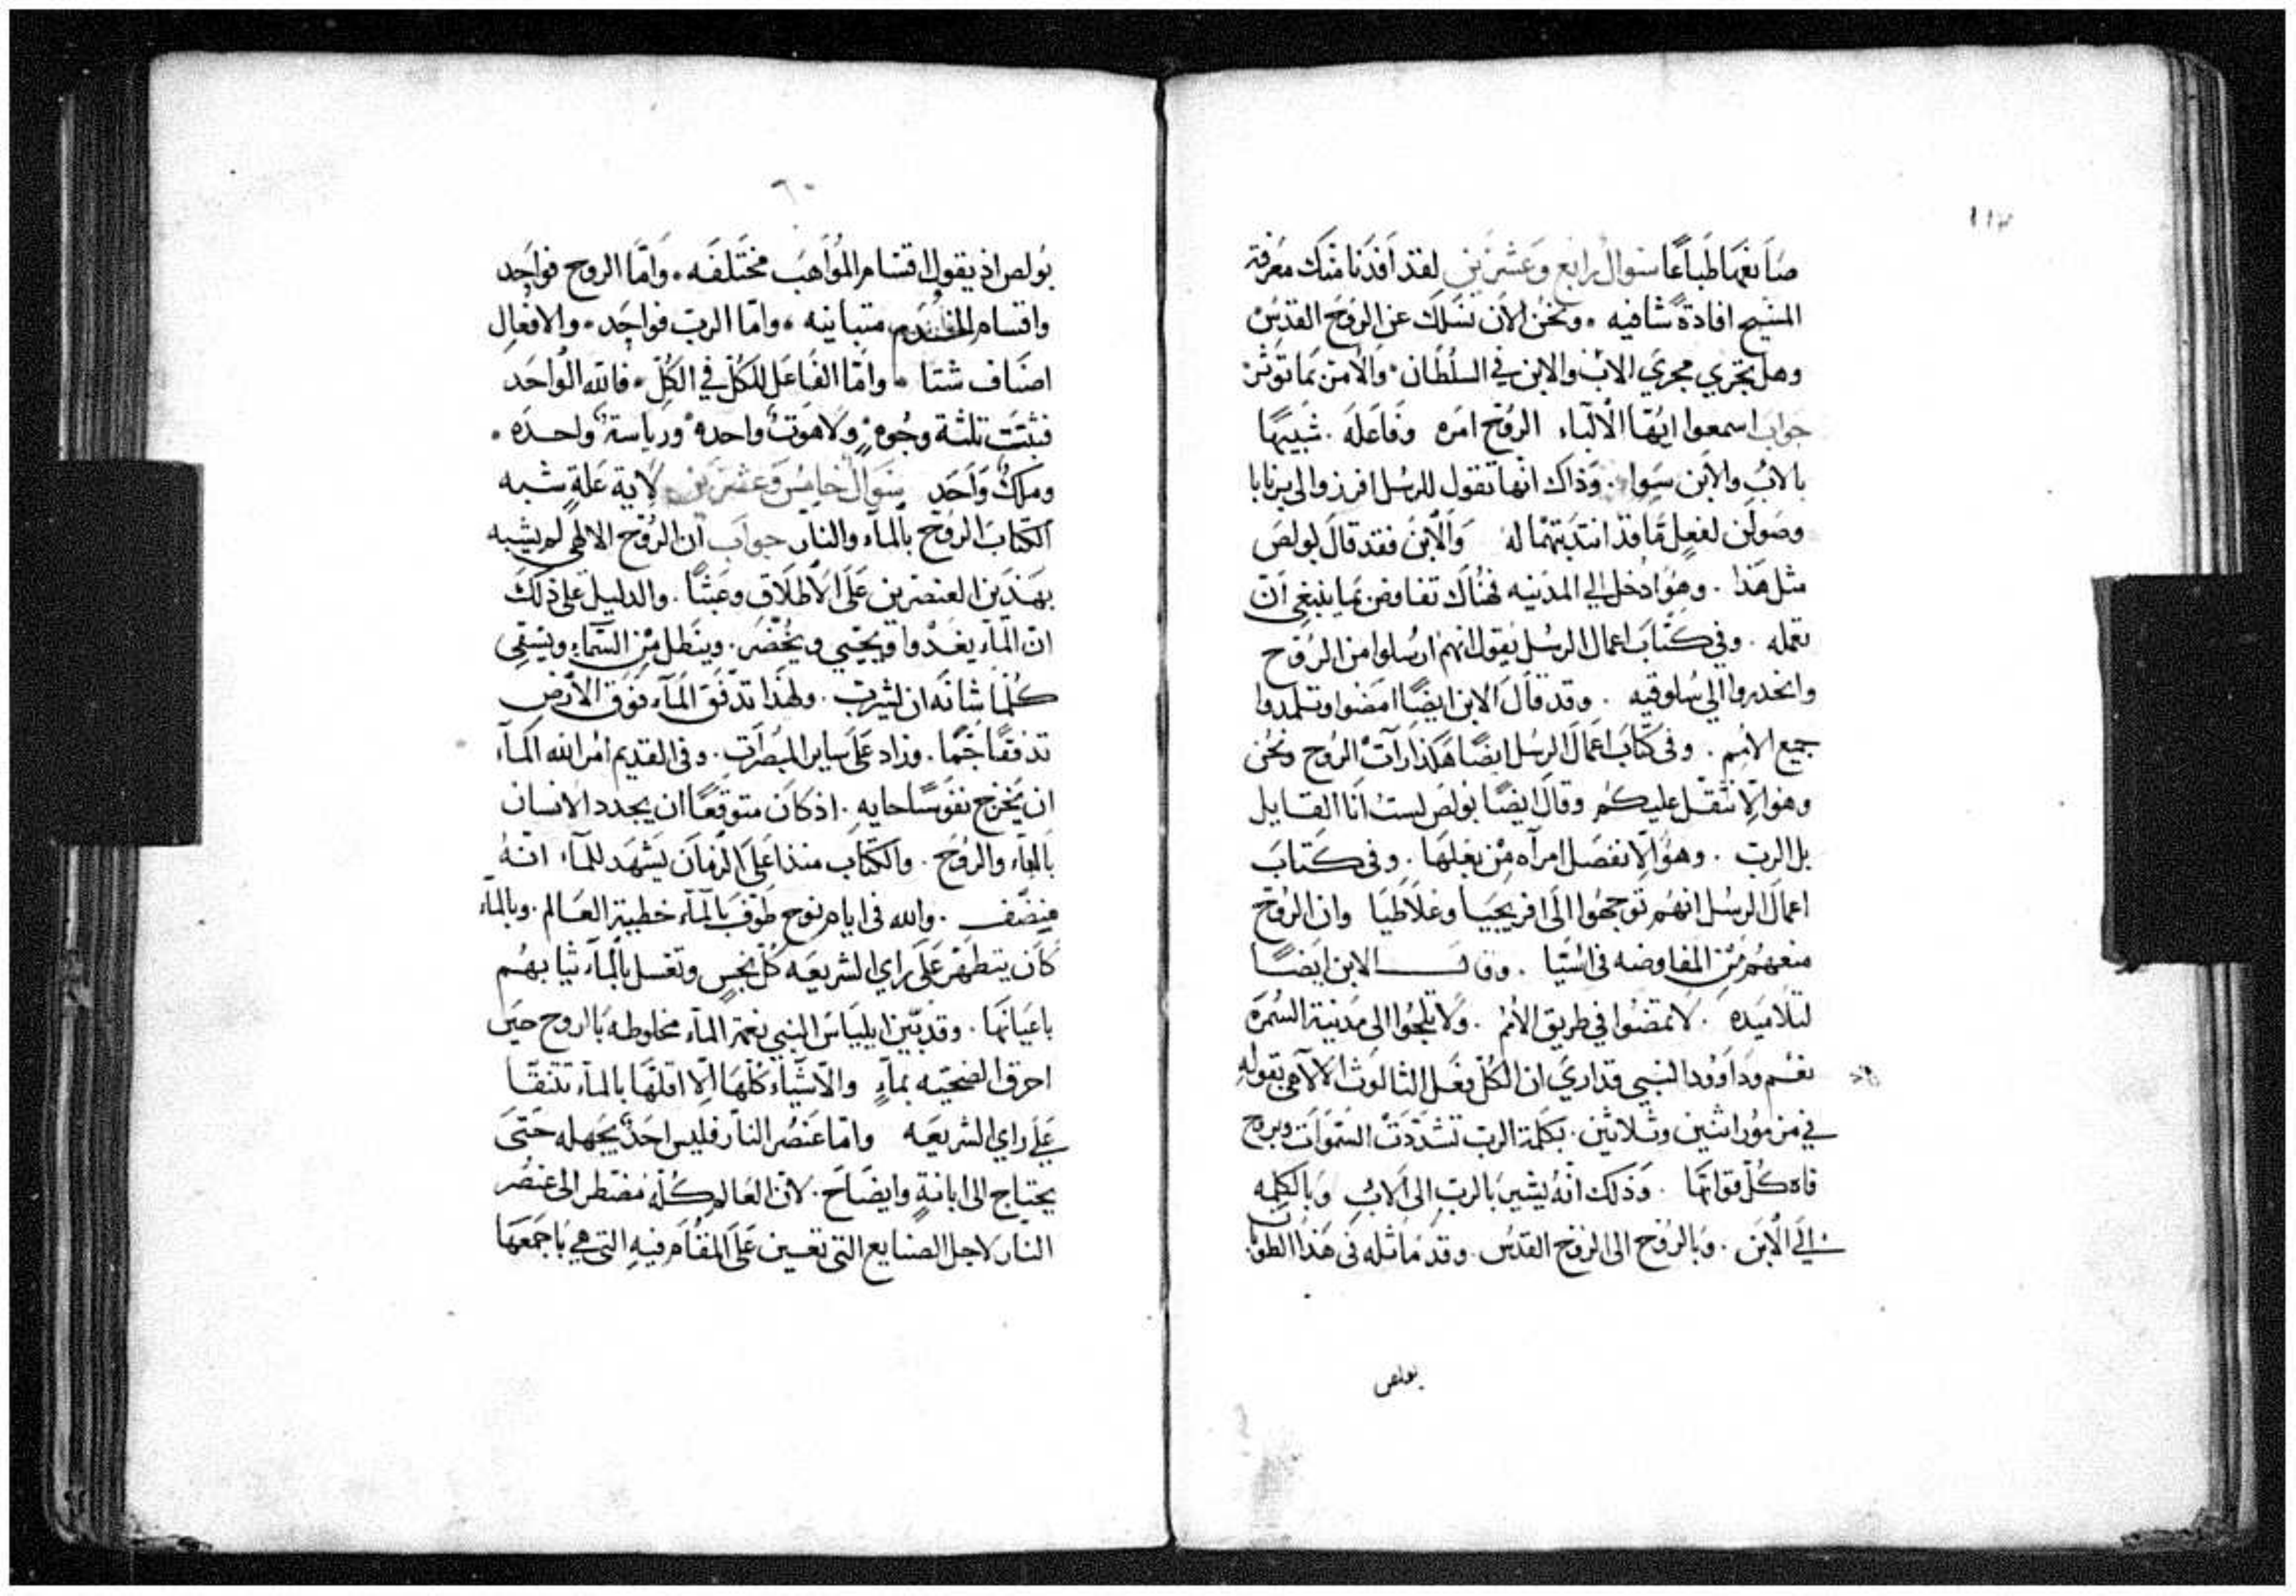 ١١٢
صانعهما طباعًا سوال رابع وعشرين لقد افدنا منك معرفة
المسيح افادةً شافيه . ونحن الان نسلك عن الروح القدس
وهل يجري مجري الاب والابن في السلطان . والامر بما توثر
جواب اسمعوا ايها الالباء الروح امره وفاعله . شبيهًا
بالاب والابن سوا . وذاك انها تقول للرسل افرزوا لي برنابا
وصولن لفعلٍ ما قد انتدبتهما له والابن فقد قال لبولص
مثل هذا . وهو ادخل الي المدينه فهناك تفاوض بما ينبغي ان
تعمله . وفي كتاب اعمال الرسل يقول انهم ارسلوا من الروح
وانحدروا الي سلوقيه . وقد قال الابن ايضًا امضوا وتلمدوا
جميع الامم . وفي كتاب اعمال الرسل ايضًا هكذا رأت الروح ونحن
وهو الا نثقل عليكم وقال ايضًا بولص لست انا القايل
بل الرب . وهو الا تفصل امرآه من بعلها . وفي كتاب
اعمال الرسل انهم توجهوا الى افريجيا وغلاطيا وان الروح
منعهم من المفاوضه في اسيا . وقال الابن ايضًا
لتلاميده . لا تمضوا في طريق الامم . ولا تلجوا الى مدينة السمره
نعم وداوود النبي قد اري ان الكل فعل الثالوث الالاهي بقوله
في مزمور اثنين وثلاثين . بكلمة الرب تشددت السموات وبروح
فاه كل قواتها . وذلك انه يشير بالرب الى الاب وبالكلمه
الي الابن . وبالروح الى الروح القدس . وقد ماثله في هذا الطوبا.
بولص
٦٠
بولص اذ يقول اقسام المواهب مختلفه . واما الروح فواحد
واقسام الخدم متباينه . واما الرب فواحد . والافعال
اصناف شتا . واما الفاعل للكل في الكل . فالله الواحد
فثبتت تلثة وجوه . ولاهوت واحده ورياسة واحده .
وملك واحد سوال خامس وعشرين لاية علةٍ شبه
الكتاب الروح بالمآء والنار جواب ان الروح الالهي لم يشبه
بهذين العنصرين على الاطلاق وعبثًا . والدليل على ذلك
ان المآء يغدوا ويحيي ويخضر . وينطل من السمآء ويسقي
كلما شانه ان يشرب . ولهذا تدفق المآء فوق الارض
تدفقًا جمًا . وزاد على ساير المبصرات . وفي القديم امر الله المآء
ان يخرج نفوسًا حايه . اذ كان متوقعًا ان يجدد الانسان
بالمآء والروح . والكتاب منذ اعلى الزمان يشهد للمآء انه
منضف . والله في ايام نوح طوف بالمآء خطية العالم . وبالمآء
كان يتطهر على راي الشريعه كل نجسٍ وتغسل بالمآء ثيابهم
باعيانها . وقد بين ايلياس النبي نعمة المآء مخلوطه بالروح حين
احرق الضحيه بمآءٍ والاشيآء كلها الا اقلها بالمآء تتنقا
علي راي الشريعه واما عنصر النار فليس احدٌ يجهله حتى
يحتاج الى ابانةٍ وايضاح . لان العالم كله مضطر الى عنصر
النار لاجل الصنايع التي تعين على المقام فيه التي هي باجمعها